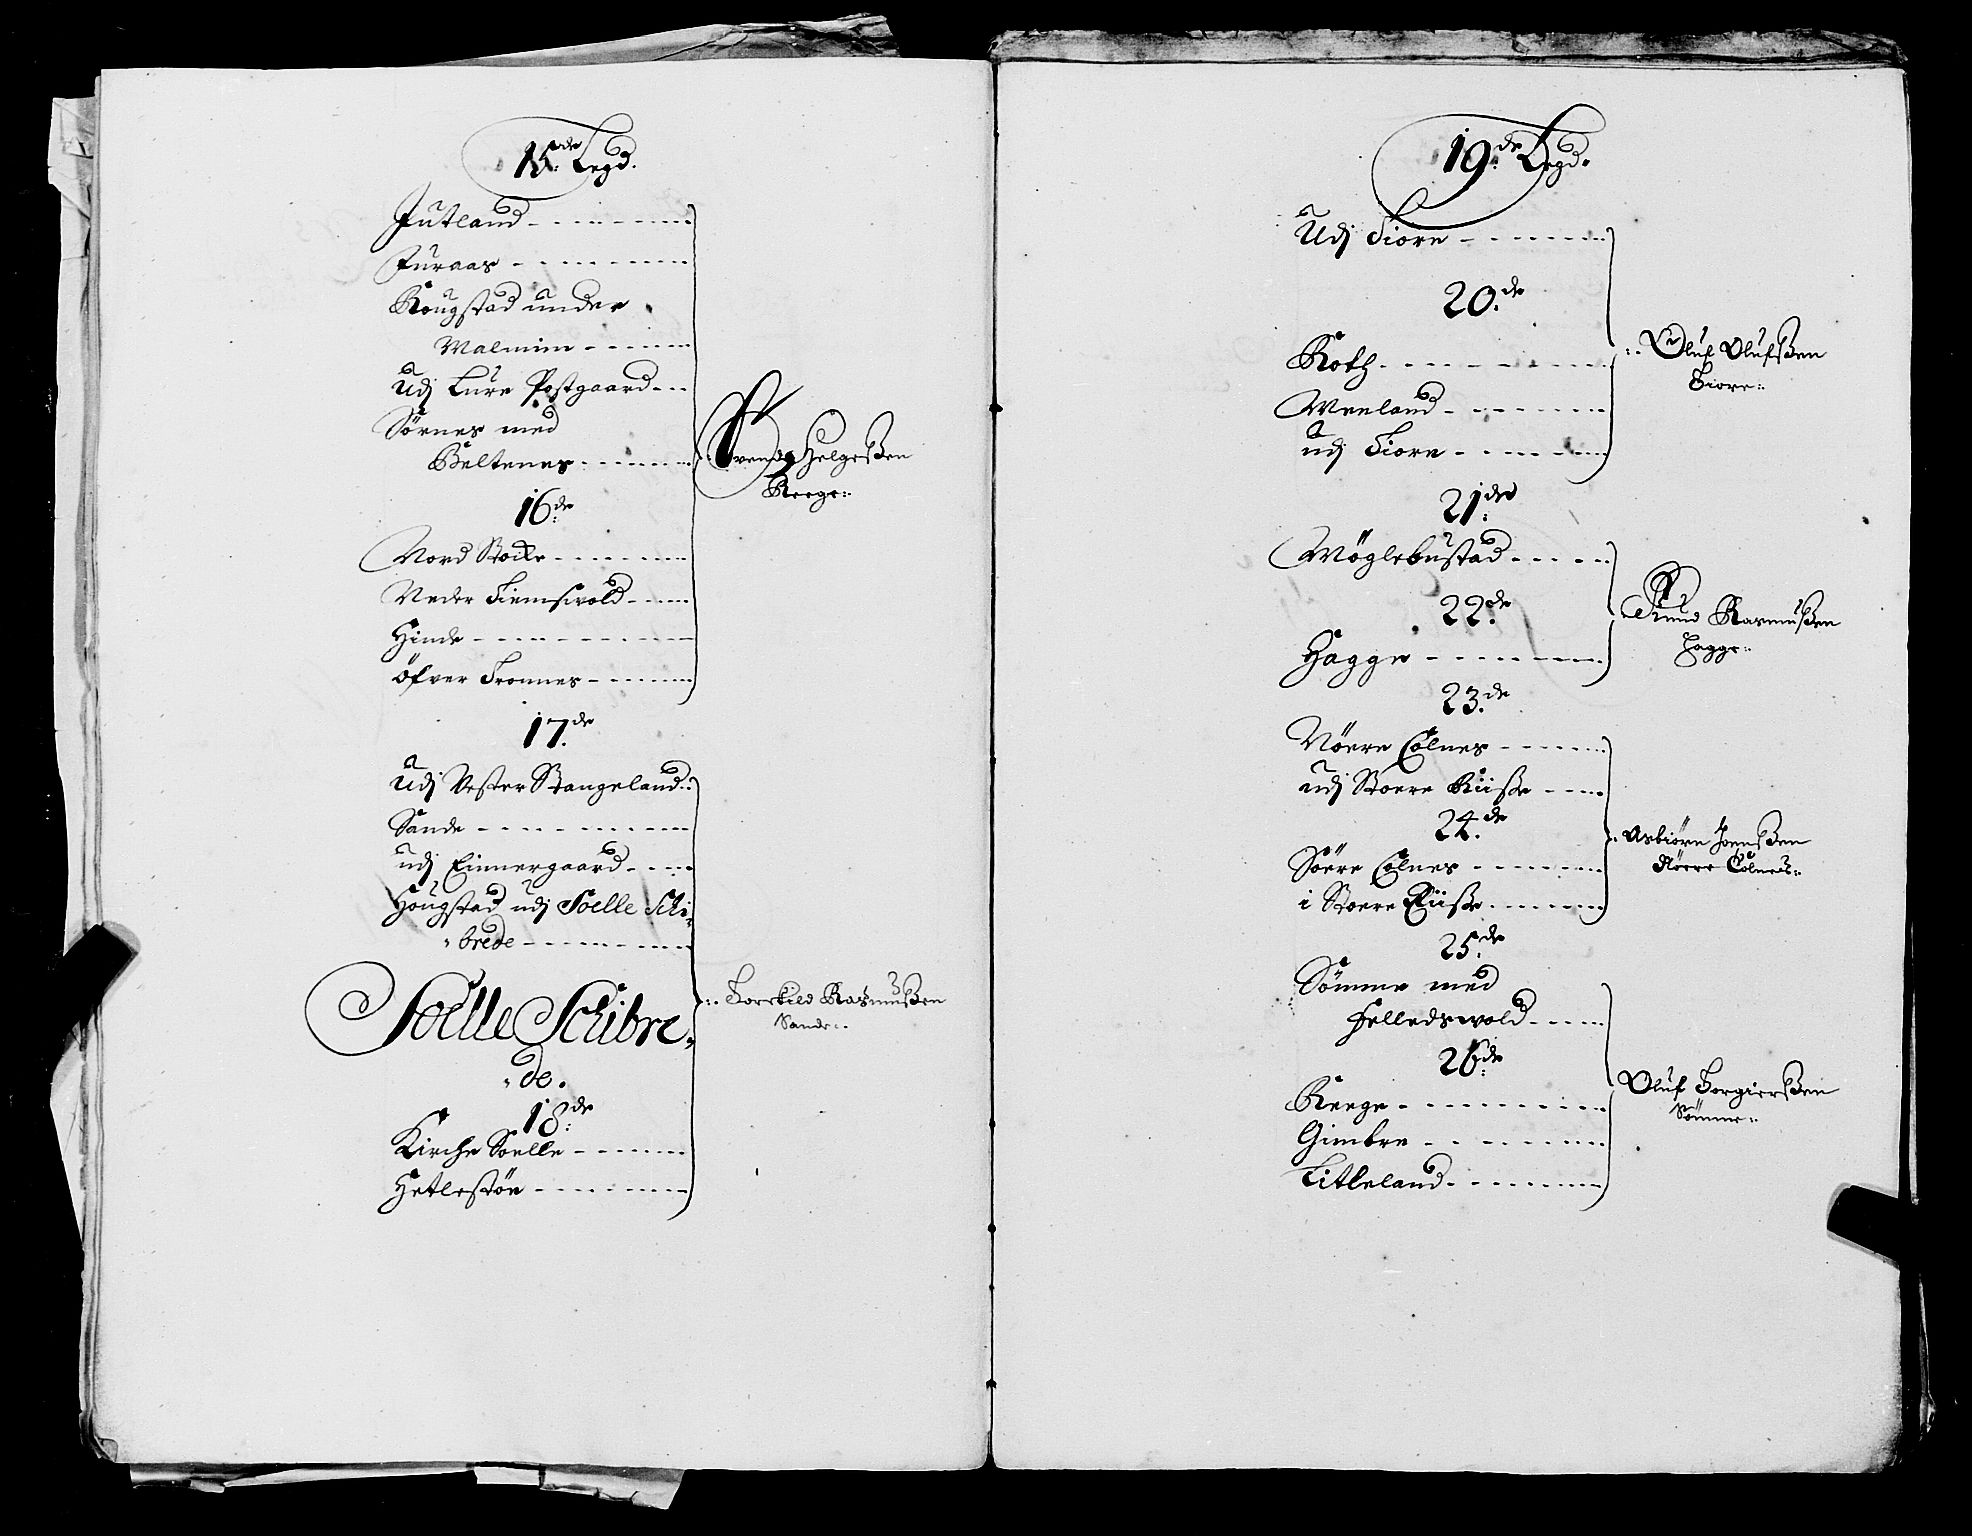 15de Legd.
Jutland
Juraas
Rougstad under
Malmim
Udj Lure Postgaard
Sörnes med
Beltenes
Svend Helgesßen
Reege
16de
Nord Stocke
Neder Tiemswold
Hinde
Öfver Tronnes
17de
Udj Vester Stangeland
Sande
udj Einnergaard
Hougstad udj Soelle Schi
brede
Soelle Schibre
de.
Torrkild Rasmußen
Sande
18de
Kirche Soelle
Hetlestöe
19de Legd.
Udj Tiore
20de
Roth
Meeland
udj Tiore
Oluf Olufsßen
Tiore
21de
Möglebustad
22de
Hagge
Knud Rasmußen
Hagge
23de
Nöere Colnes
udj Stoere Riisße
24de
Söere Colnes
i Stoere Riisße
Asbiörn Joensßen
Nöere Colnes
25de
Sömme med
Jelledswold
26de
Reege
Gimbre
Litleland
Oluf Torgiersßen
Sömme